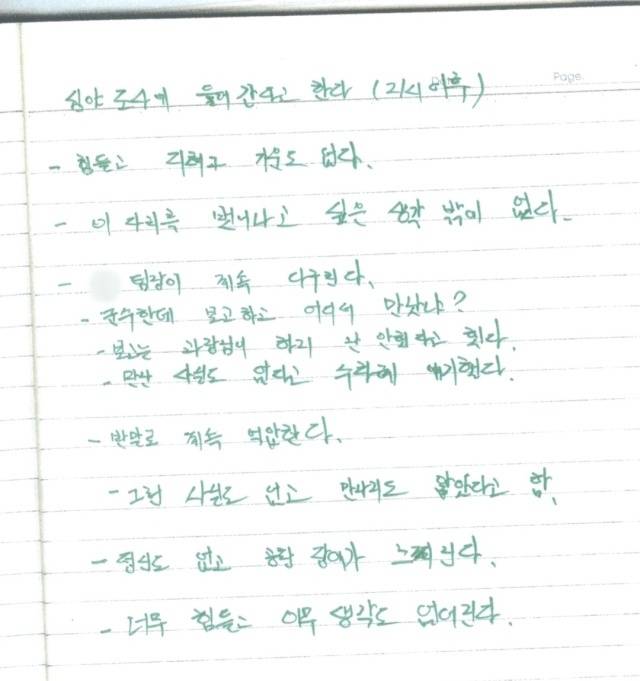 심야 조사에 들어 간다고 한다 (21시 이후)
Page.
- 힘들고 지치고 기운도 없다.
- 이 자리를 벗어나고 싶은 생각 밖에 없다.
- 팀장이 계속 다구친다.
- 군수한데 보고하고 어디서 만났냐?
- 보고는 과장님이 하지 난 안했다고 했다.
- 만난 사실도 없다고 수차례 얘기했다.
- 반말로 계속 억압한다.
- 그런 사실도 없고 만나지도 않았다고 함.
- 정신도 없고 공황 장애가 느껴진다.
- 너무 힘들고 아무 생각도 없어진다.